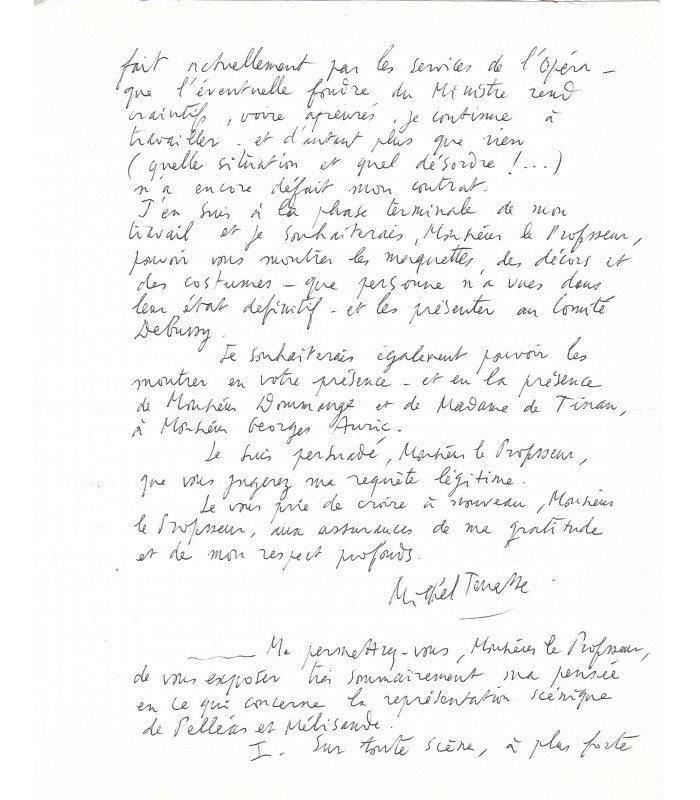 fait actuellement par les services de l'Opéra –
que l'éventuelle foudre du Ministre rend
craintifs, voire apeurés, je continue à
travailler – et d'autant plus que rien
(quelle situation et quel désordre !...)
n'a encore défait mon contrat.
J'en suis à la phase terminale de mon
travail et je souhaiterais, Monsieur le Professeur,
pouvoir vous montrer les maquettes, des décors et
des costumes – que personne n'a vues dans
leur état définitif – et les présenter au Comité
Debussy.
Je souhaiterais également pouvoir les
montrer en votre présence – et en la présence
de Monsieur Dommange et de Madame de Tinan,
à Monsieur Georges Auric.
Je suis persuadé, Monsieur le Professeur,
que vous jugerez ma requête légitime.
Je vous prie de croire à nouveau, Monsieur
le Professeur, aux assurances de ma gratitude
et de mon respect profonds.
Michel Terrasse
Me permettrez-vous, Monsieur le Professeur,
de vous exposer très sommairement ma pensée
en ce qui concerne la représentation scénique
de Pelléas et Mélisande.
I. Sur toute scène, à plus forte